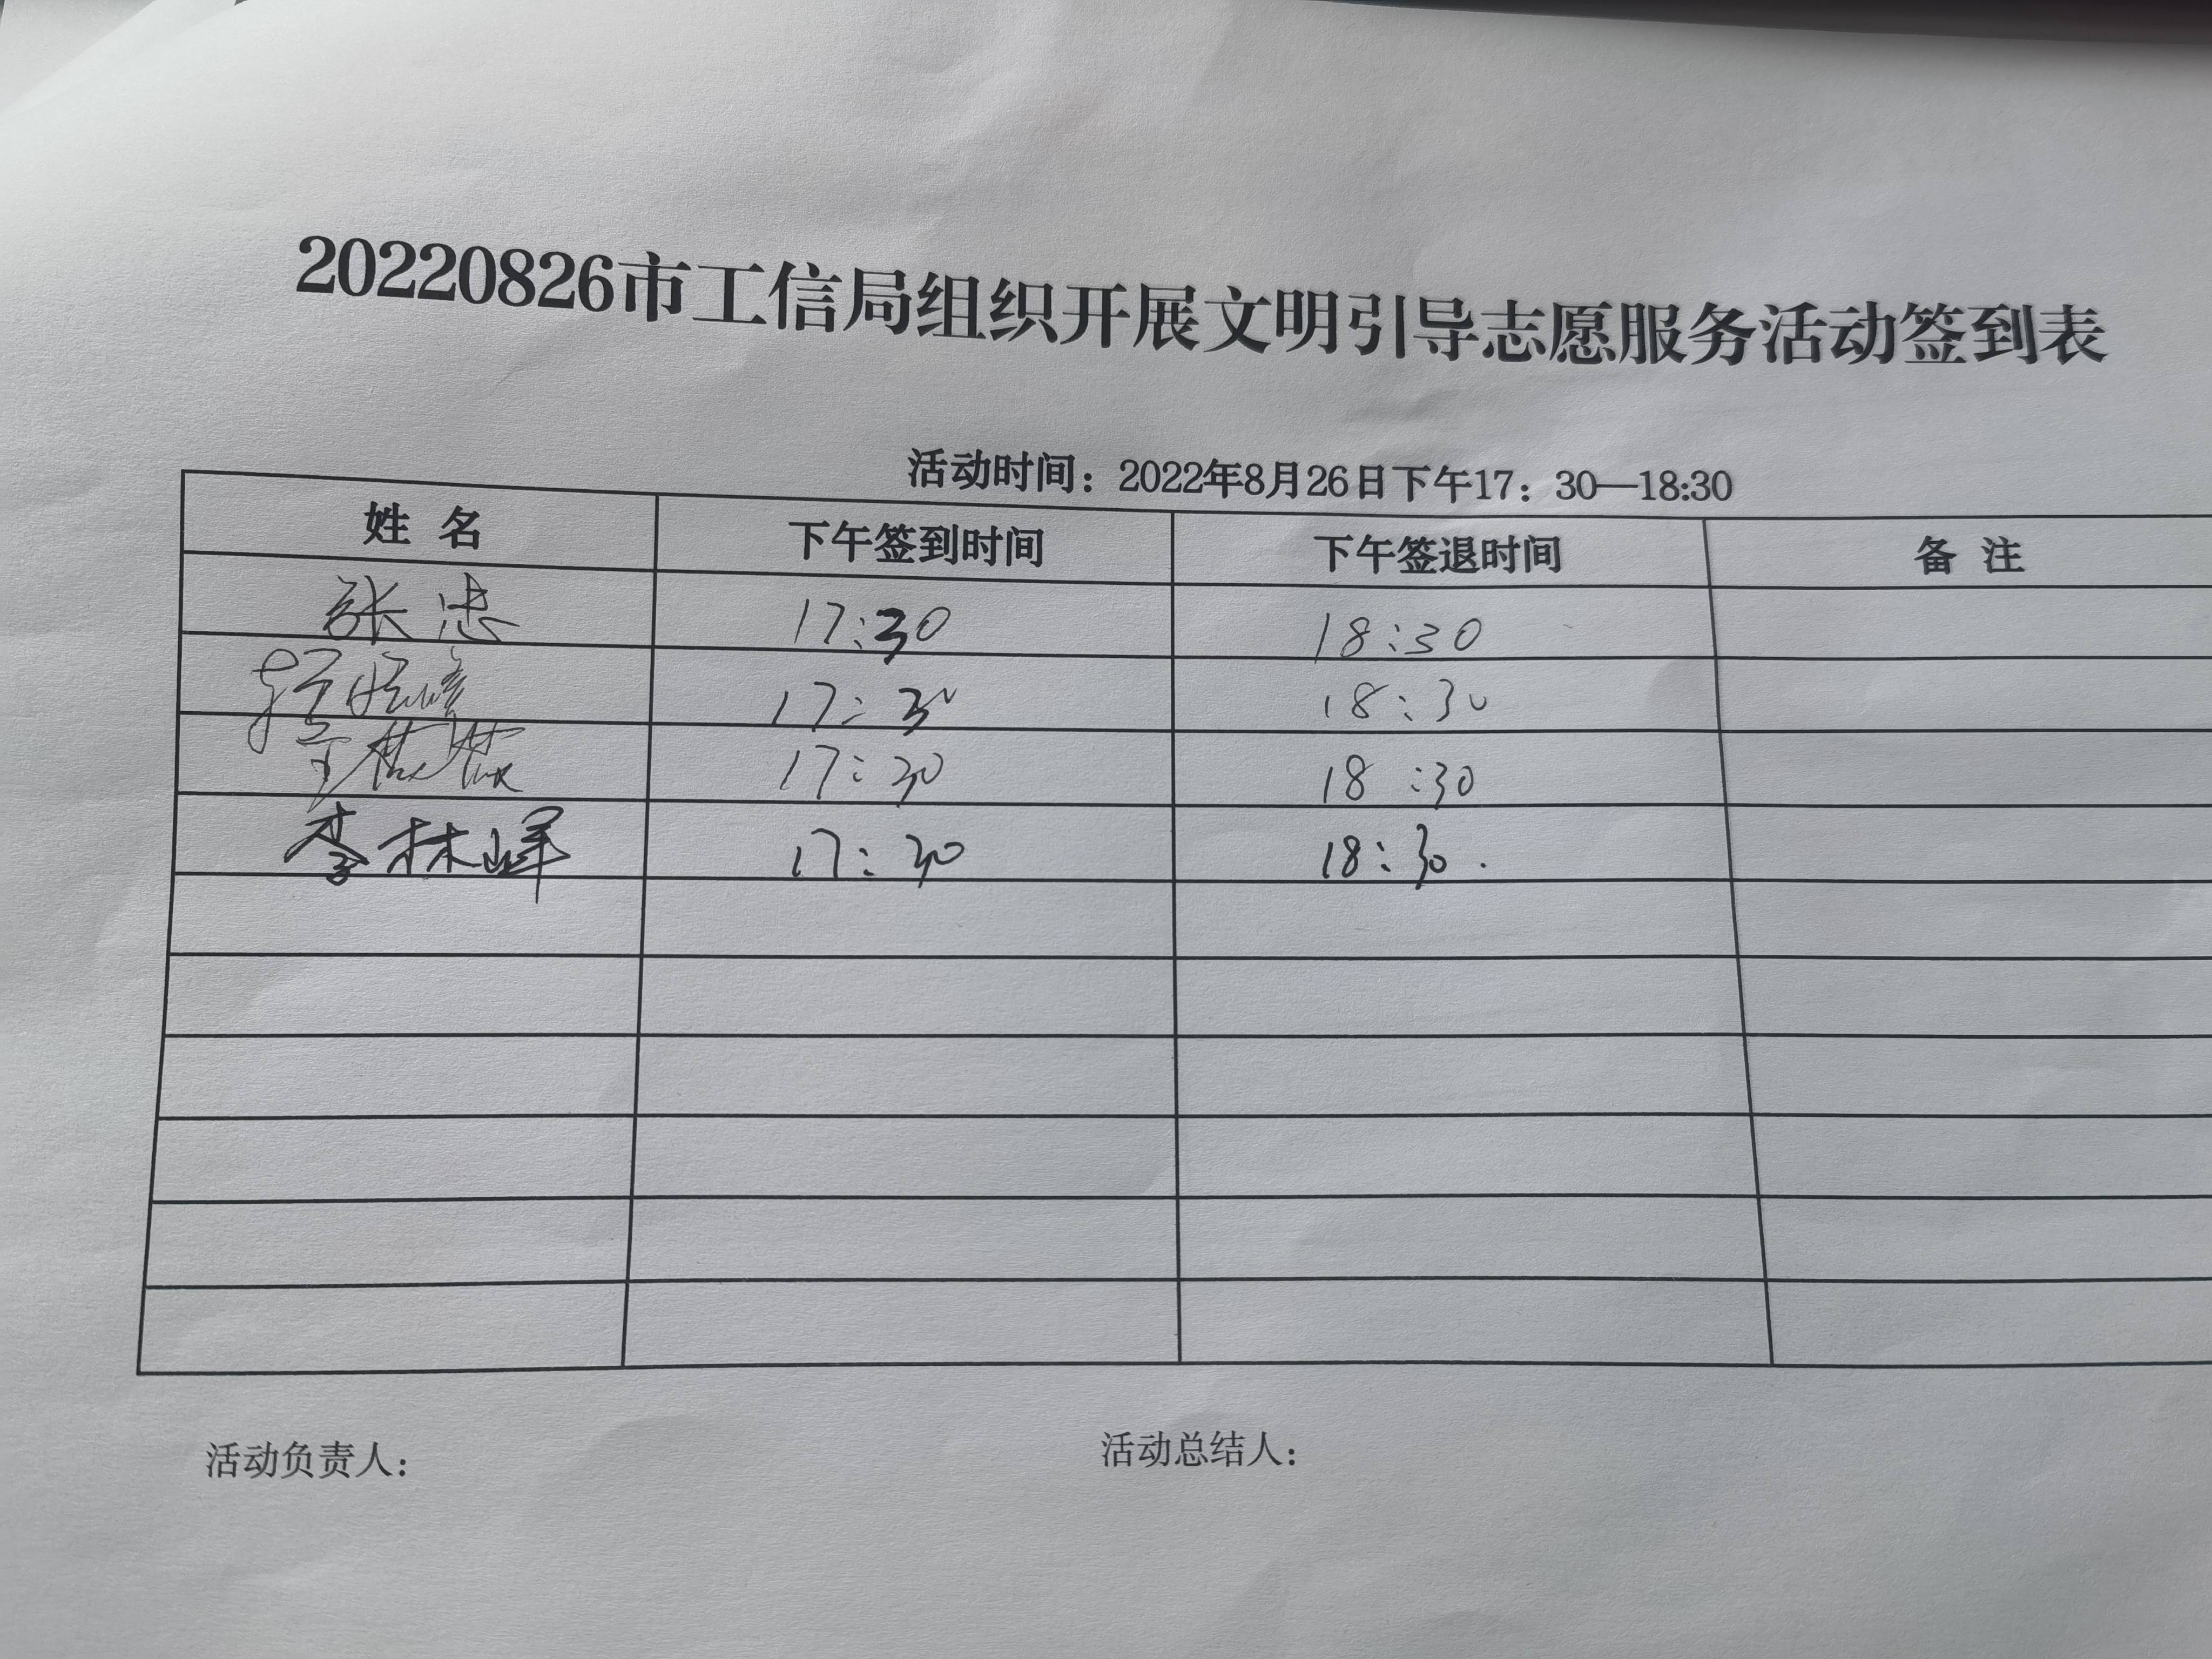 20220826市工信局组织开展文明引导志愿服务活动签到表
活动时间：2022年8月26日下午17：30—18:30
姓 名 下午签到时间 下午签退时间 备 注
张忠 17:30 18:30
17:30 18:30
17:30 18:30
李林峰 17:30 18:30.
活动负责人： 活动总结人：